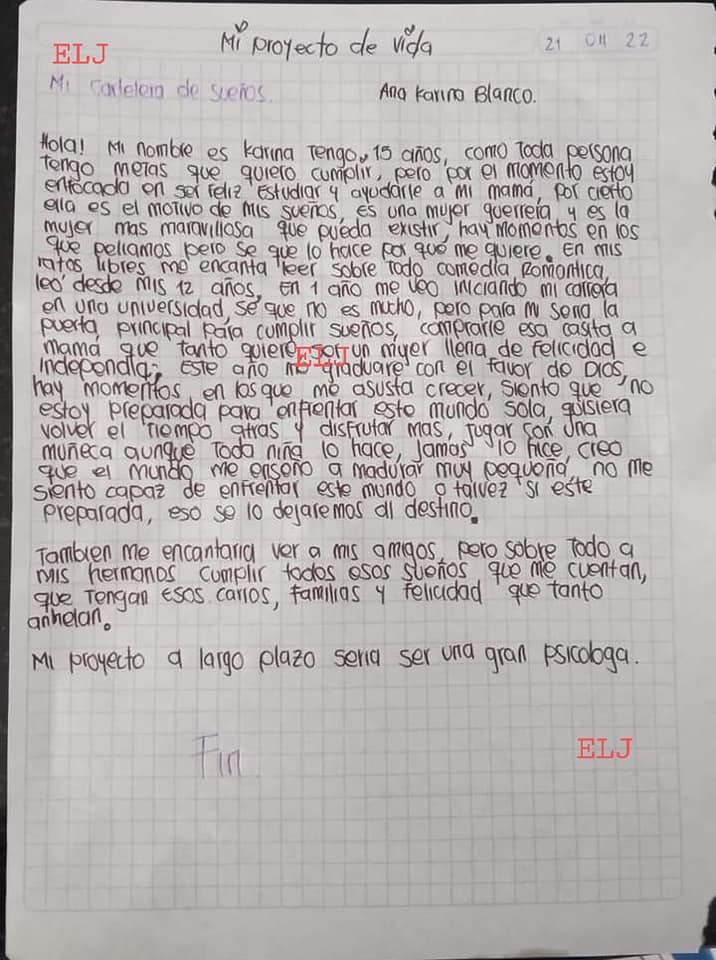 ELJ
Mi proyecto de vida
21 04 22
Mi cartelera de sueños.
Ana Karina Blanco.
Hola! Mi nombre es Karina Tengo, 15 años, como Toda persona
Tengo metas que quiero cumplir, pero por el momento estoy
enfocada en ser feliz Estudiar y ayudarle a mi mamá, por cierto
ella es el motivo de mis sueños, es una mujer guerrera, y es la
mujer mas maravillosa que pueda existir, hay momentos en los
que peliamos pero se que lo hace por que me quiere. En mis
ratos libres me encanta leer sobre Todo comedia Romontica,
leo desde mis 12 años, En 1 año me veo iniciando mi carrera
en una universidad, se que no es mucho, pero para mi seria la
puerta principal para cumplir sueños, comprarle esa casita a
mamá que tanto quiere, ser un myer llena de felicidad e
ELJ
Independia, Este año me graduare con el favor de Dios,
hay momentos en los que me asusta crecer, siento que no
estoy preparada para enfrentar este mundo sola, quisiera
volver el Tiempo atras y disfrutar mas, Jugar con una
muñeca aunque Toda niña lo hace, Jamas lo hice, creo
que el mundo me enseño a madurar muy pequeña, no me
siento capaz de enfrentar este mundo o talvez si este
preparada, eso se lo dejaremos al destino.
Tambien me encantaria ver a mis amigos, pero sobre Todo a
mis hermanos cumplir todos esos sueños que me cuentan,
que Tengan Esos carros, familias y felicidad que tanto
anhelan.
Mi proyecto a largo plazo seria ser una gran psicologa.
Fin
ELJ